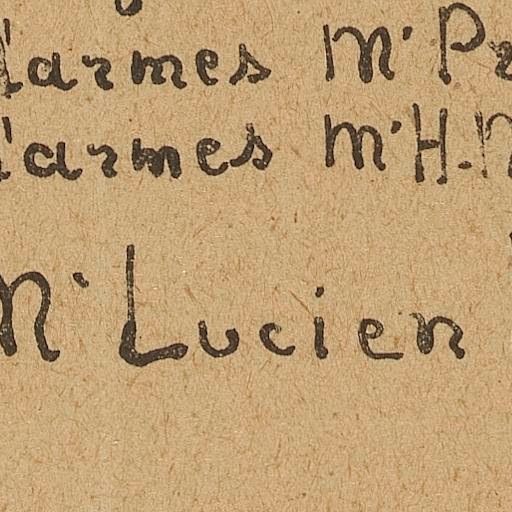 d'armes Mr Pr
d'armes Mr H.
Mr Lucien